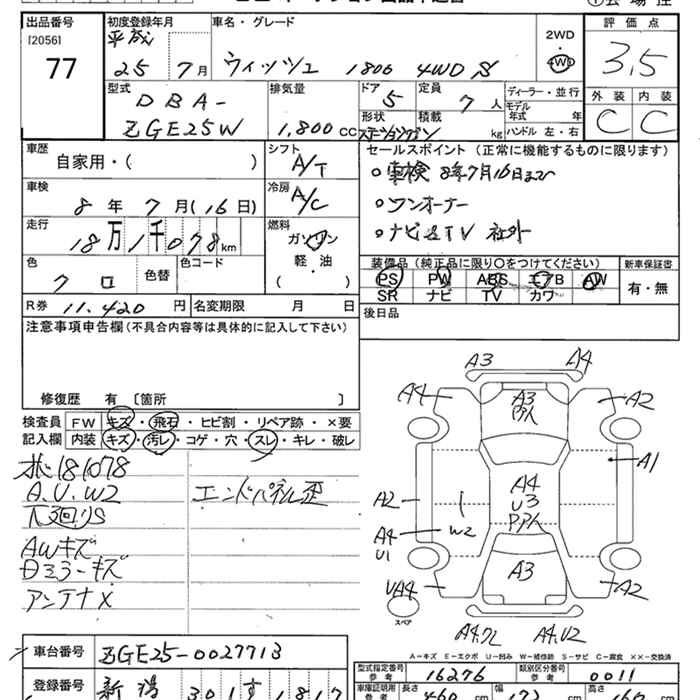 出品番号 初度登録年月 車名・グレード 評価点
[2056] 平成 2WD
77 25 7月 ウィッシュ 1800 4WD S 4WD 3.5
型式 排気量 ドア 定員 ディーラー・並行 外装 内装
DBA- 5 7人 モデル年式 年式 C C
ZGE25W 1,800cc 形状 積載 ハンドル 左・右
ステーションワゴン kg
車歴 シフト セールスポイント (正常に機能するものに限ります)
自家用・( ) A/T ○車検 8年7月16日まで
車検 冷房 ○ワンオーナー
8年 7月(16日) A/C ○ナビ&TV 社外
走行 燃料
18万1千078km ガソリン
色 色替 色コード 軽・油
クロ ( )
装備品 (純正品に限り○をつけてください) 新車保証書
PS PW ABS エアB AW 有・無
SR ナビ TV カワ
R券 11,420円 名変期限 月 日
後日品
注意事項申告欄 (不具合内容等は具体的に記入して下さい)
修復歴 有 [箇所 ]
検査員 FW キズ・飛石・ヒビ割・リペア跡・×要
記入欄 内装 キズ・汚レ・コゲ・穴・スレ・キレ・破レ
181078
A.U.W2 エンドパネル歪
下廻りS
AWキズ
Dミラーキズ
アンテナX
A3 A4
A4 A3 A2
A1
A2 A4
U3
A4 W2
U1
A3
UA4 A2
スペア
A4.U2
A-キズ E-エクボ U-凹み W-補修跡 S-サビ C-腐食 ××-交換済
車台番号 ZGE25-0027713
型式指定番号 参考 16276 類別区分番号 参考 0011
登録番号 新潟 301 す 1817
車庫証明用 参考 長さ 460